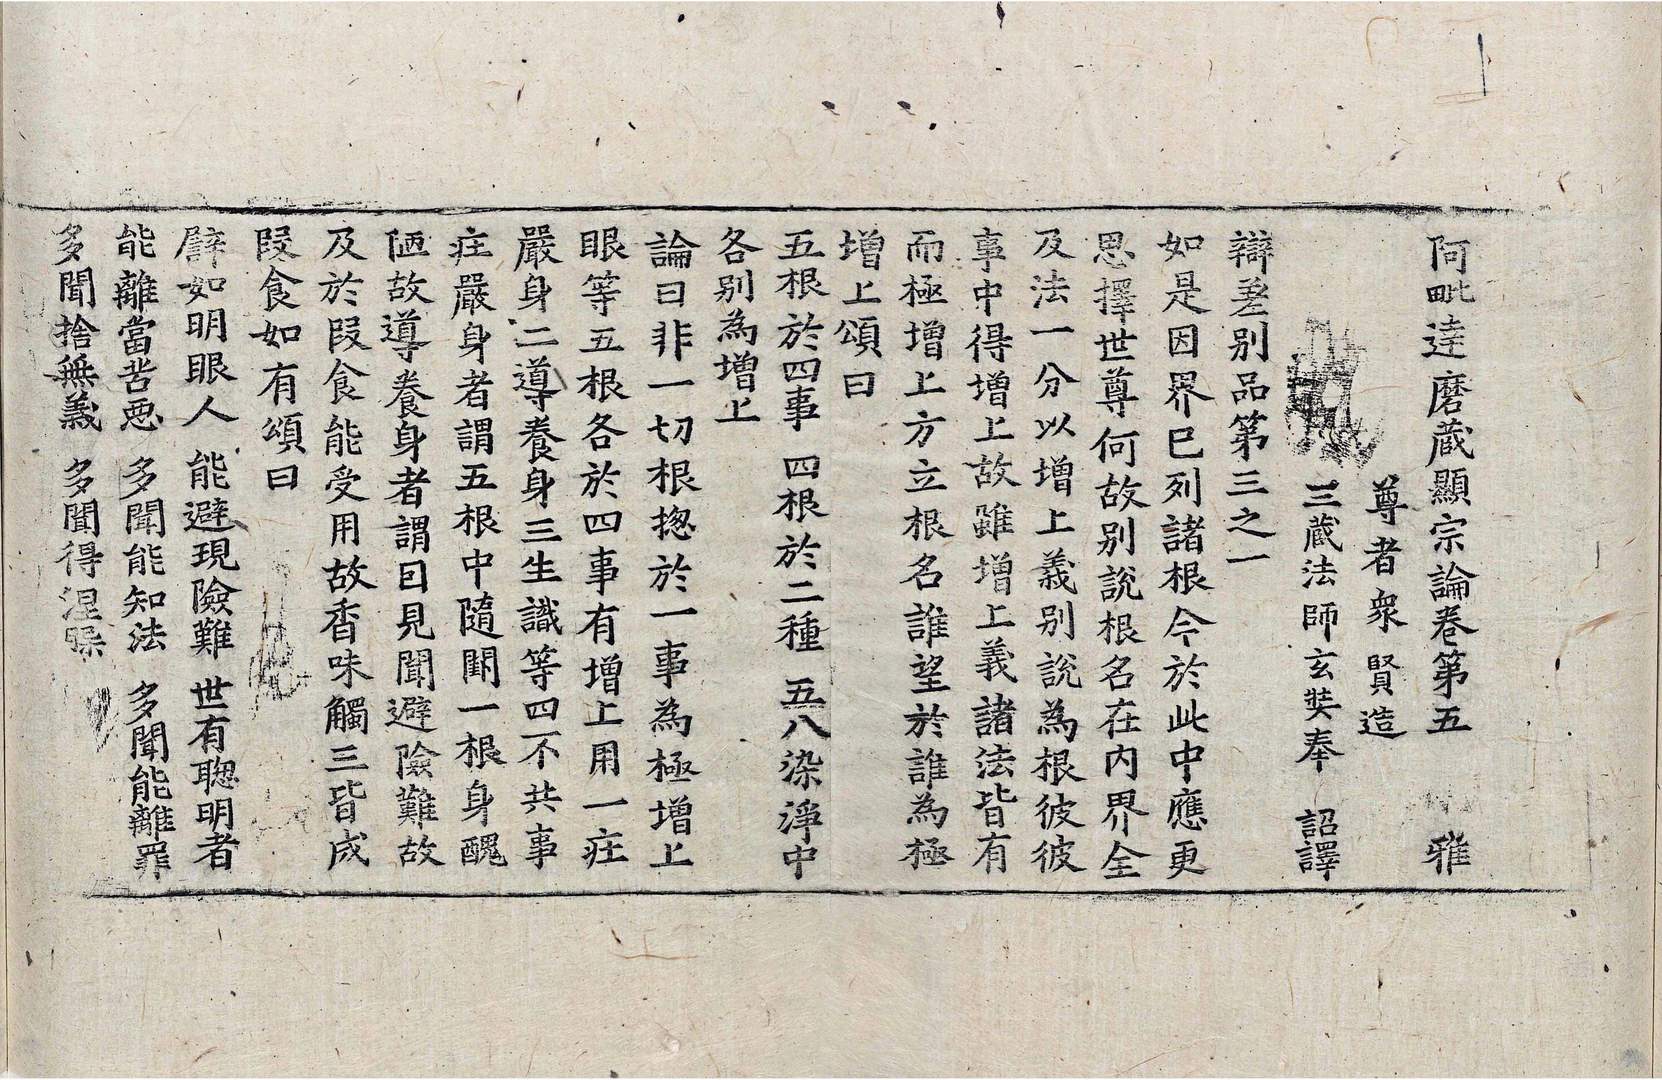 阿毗達磨蔵顯宗論卷第五 雅
尊者衆賢造
三蔵法師玄奘奉 詔譯
辯差别品第三之一
如是因界已列諸根今於此中應更
思擇世尊何故别說根名在内界全
及法一分以增上義别說為根彼彼
事中得增上故雖增上義諸法皆有
而極增上方立根名誰望於誰為極
增上頌曰
五根於四事 四根於二種 五八染淨中
各别為增上
論曰非一切根揔於一事為極增上
眼等五根各於四事有增上用一疘
嚴身二導養身三生識等四不共事
疘嚴身者謂五根中隨闕一根身醜
陋故導養身者謂因見聞避險難故
及於段食能受用故香味觸三皆成
段食如有頌曰
譬如明眼人 能避現險難 世有聰明者
能離當苦惡 多聞能知法 多聞能離罪
多聞捨無義 多聞得涅槃